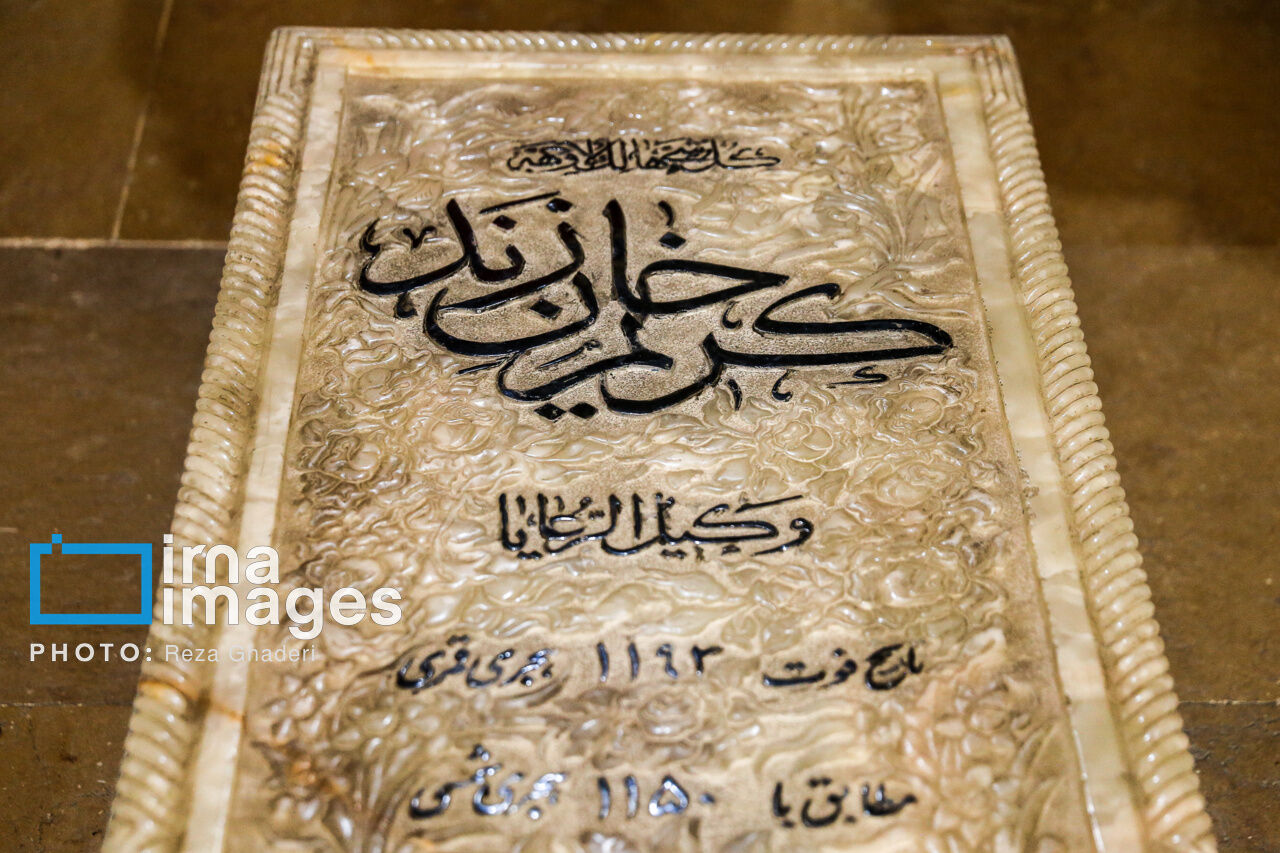 کل شیء هالک الا وجهه
کریم خان زند
وکیل الرعایا
تاریخ فوت ۱۱۹۳ هجری قمری
مطابق با ۱۱۵۰ هجری شمسی
irna
images
PHOTO: Reza Ghaderi